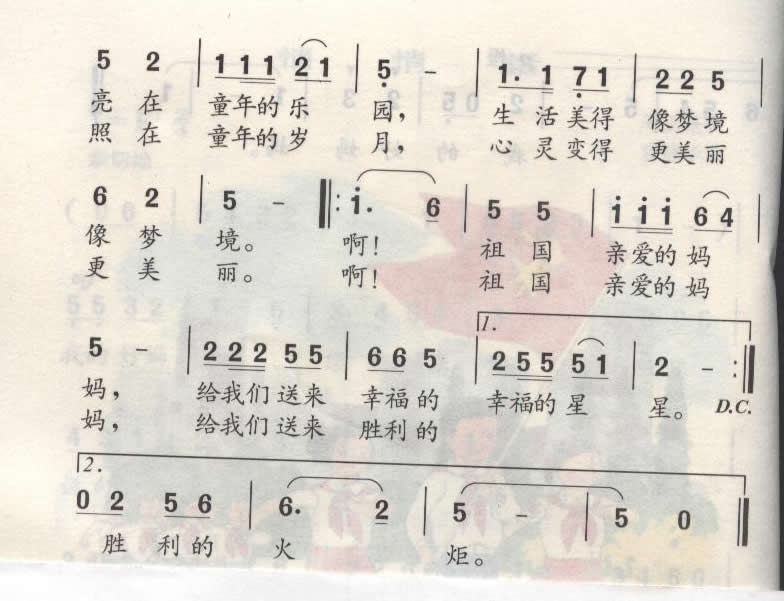 5 2 | 1 1 1 2 1 | 5 - | 1. 1 7 1 | 2 2 5
亮 在 童年的乐 园， 生 活 美得 像梦境
照 在 童年的岁 月， 心 灵 变得 更美丽
6 2 | 5 - ‖: i. 6 | 5 5 | i i i 6 4 |
像 梦 境。 啊！ 祖 国 亲爱的 妈
更 美 丽。 啊！ 祖 国 亲爱的 妈
1.
5 - | 2 2 2 5 5 | 6 6 5 | 2 5 5 5 1 | 2 - :‖
妈， 给我们 送来 幸福 的 幸福的 星 星。 D.C.
妈， 给我们 送来 胜利 的
2.
0 2 5 6 | 6. 2 | 5 - | 5 0 ‖
胜 利的 火 炬。